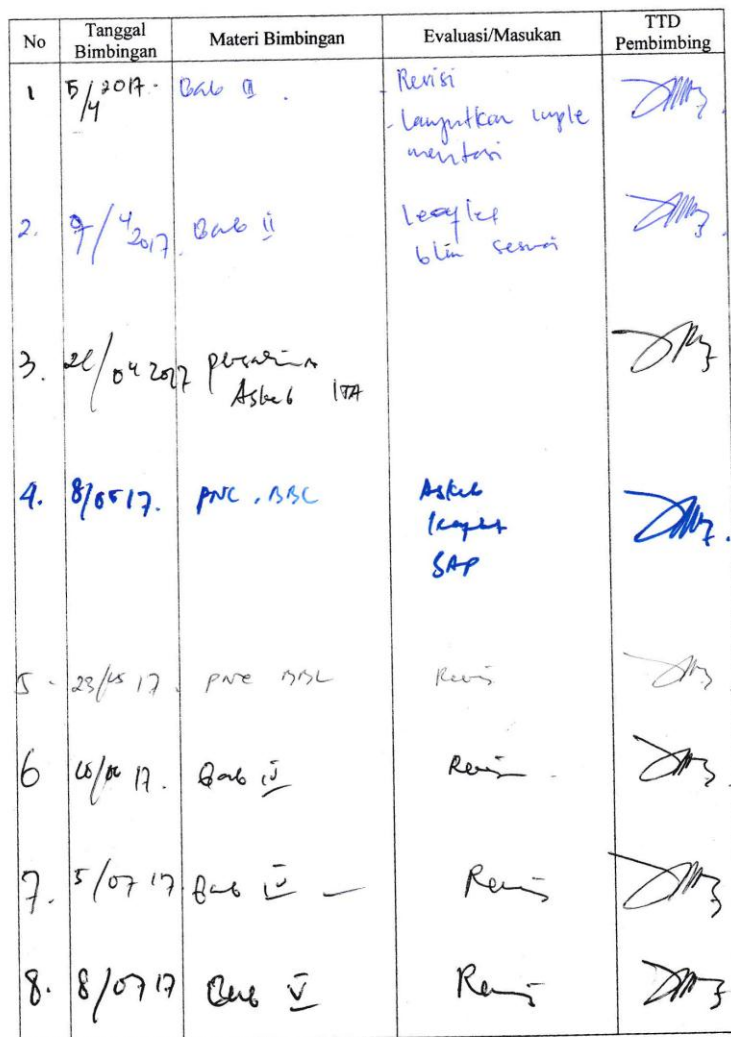 No Tanggal Bimbingan Materi Bimbingan Evaluasi/Masukan TTD Pembimbing
1 5/4 2017. Bab II . - Revisi
- Lanjutkan imple
mentasi
2. 9/4 2017 Bab II Leaflet
blm sesuai
3. /04 2017
Askeb
4. 8/05 17. PNC . BBL Askeb
Leaflet
SAP
5. 23/05 17. PNC BBL Revisi
6 17. Bab IV Revisi
7. 5/07 17 Bab IV Revisi
8. 8/07 17 Bab V Revisi